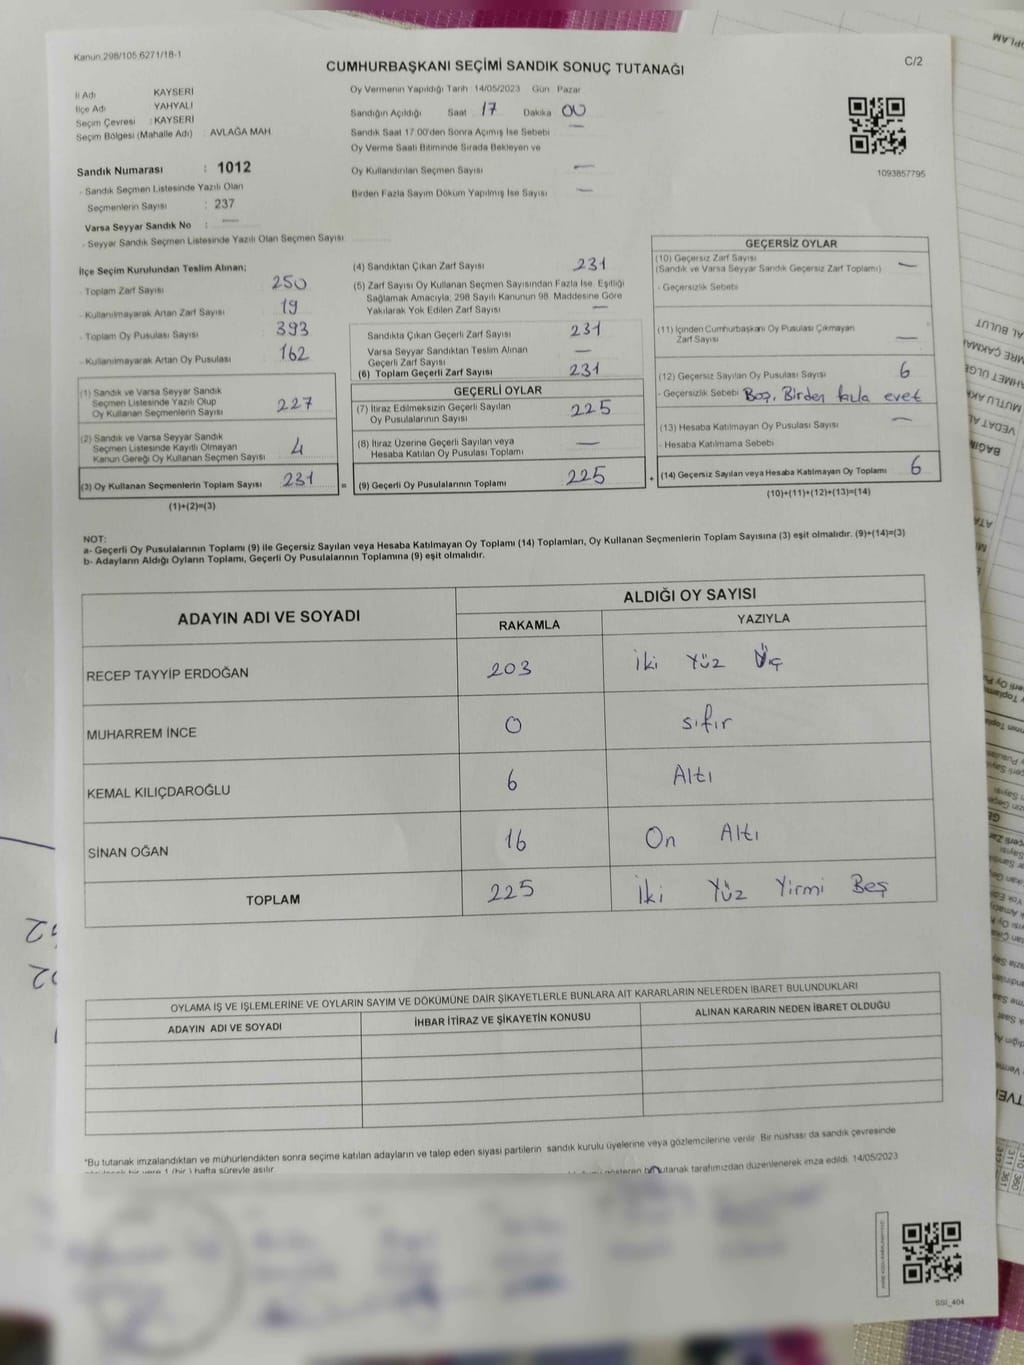 Kanun.298/105.6271/18-1
C/2
CUMHURBAŞKANI SEÇİMİ SANDIK SONUÇ TUTANAĞI
İl Adı KAYSERİ
İlçe Adı YAHYALI
Seçim Çevresi : KAYSERİ
Seçim Bölgesi (Mahalle Adı) : AVLAĞA MAH
Sandık Numarası : 1012
- Sandık Seçmen Listesinde Yazılı Olan
Seçmenlerin Sayısı : 237
Varsa Seyyar Sandık No : —
- Seyyar Sandık Seçmen Listesinde Yazılı Olan Seçmen Sayısı
Oy Vermenin Yapıldığı Tarih 14/05/2023 Gün Pazar
Sandığın Açıldığı Saat 17 Dakika 00
Sandık Saat 17.00'den Sonra Açılmış İse Sebebi —
Oy Verme Saati Bitiminde Sırada Bekleyen ve
Oy Kullandırılan Seçmen Sayısı —
Birden Fazla Sayım Döküm Yapılmış İse Sayısı —
1093857795
İlçe Seçim Kurulundan Teslim Alınan;
- Toplam Zarf Sayısı 250
- Kullanılmayarak Artan Zarf Sayısı 19
- Toplam Oy Pusulası Sayısı 393
- Kullanılmayarak Artan Oy Pusulası 162
(1) Sandık ve Varsa Seyyar Sandık
Seçmen Listesinde Yazılı Olup
Oy Kullanan Seçmenlerin Sayısı 227
(2) Sandık ve Varsa Seyyar Sandık
Seçmen Listesinde Kayıtlı Olmayan
Kanun Gereği Oy Kullanan Seçmen Sayısı 4
(3) Oy Kullanan Seçmenlerin Toplam Sayısı 231 =
(1)+(2)=(3)
(4) Sandıktan Çıkan Zarf Sayısı 231
(5) Zarf Sayısı Oy Kullanan Seçmen Sayısından Fazla İse, Eşitliği
Sağlamak Amacıyla; 298 Sayılı Kanunun 98. Maddesine Göre
Yakılarak Yok Edilen Zarf Sayısı —
Sandıkta Çıkan Geçerli Zarf Sayısı 231
Varsa Seyyar Sandıktan Teslim Alınan
Geçerli Zarf Sayısı —
(6) Toplam Geçerli Zarf Sayısı 231
GEÇERLİ OYLAR
(7) İtiraz Edilmeksizin Geçerli Sayılan
Oy Pusulalarının Sayısı 225
(8) İtiraz Üzerine Geçerli Sayılan veya
Hesaba Katılan Oy Pusulası Toplamı —
(9) Geçerli Oy Pusulalarının Toplamı 225 +
GEÇERSİZ OYLAR
(10) Geçersiz Zarf Sayısı
(Sandık ve Varsa Seyyar Sandık Geçersiz Zarf Toplamı) —
- Geçersizlik Sebebi
(11) İçinden Cumhurbaşkanı Oy Pusulası Çıkmayan
Zarf Sayısı —
(12) Geçersiz Sayılan Oy Pusulası Sayısı 6
- Geçersizlik Sebebi Boş, Birden fazla evet
(13) Hesaba Katılmayan Oy Pusulası Sayısı —
- Hesaba Katılmama Sebebi
(14) Geçersiz Sayılan veya Hesaba Katılmayan Oy Toplamı 6
(10)+(11)+(12)+(13)=(14)
NOT:
a- Geçerli Oy Pusulalarının Toplamı (9) ile Geçersiz Sayılan veya Hesaba Katılmayan Oy Toplamı (14) Toplamları, Oy Kullanan Seçmenlerin Toplam Sayısına (3) eşit olmalıdır. (9)+(14)=(3)
b- Adayların Aldığı Oyların Toplamı, Geçerli Oy Pusulalarının Toplamına (9) eşit olmalıdır.
ADAYIN ADI VE SOYADI ALDIĞI OY SAYISI
RAKAMLA YAZIYLA
RECEP TAYYİP ERDOĞAN 203 İki Yüz Üç
MUHARREM İNCE 0 sıfır
KEMAL KILIÇDAROĞLU 6 Altı
SİNAN OĞAN 16 On Altı
TOPLAM 225 İki Yüz Yirmi Beş
OYLAMA İŞ VE İŞLEMLERİNE VE OYLARIN SAYIM VE DÖKÜMÜNE DAİR ŞİKAYETLERLE BUNLARA AİT KARARLARIN NELERDEN İBARET BULUNDUKLARI
ADAYIN ADI VE SOYADI İHBAR İTİRAZ VE ŞİKAYETİN KONUSU ALINAN KARARIN NEDEN İBARET OLDUĞU
*Bu tutanak imzalandıktan ve mühürlendikten sonra seçime katılan adayların ve talep eden siyasi partilerin sandık kurulu üyelerine veya gözlemcilerine verilir. Bir nüshası da sandık çevresinde
1 (bir) hafta süreyle asılır. tutanak tarafımızdan düzenlenerek imza edildi. 14/05/2023
SSİ_404